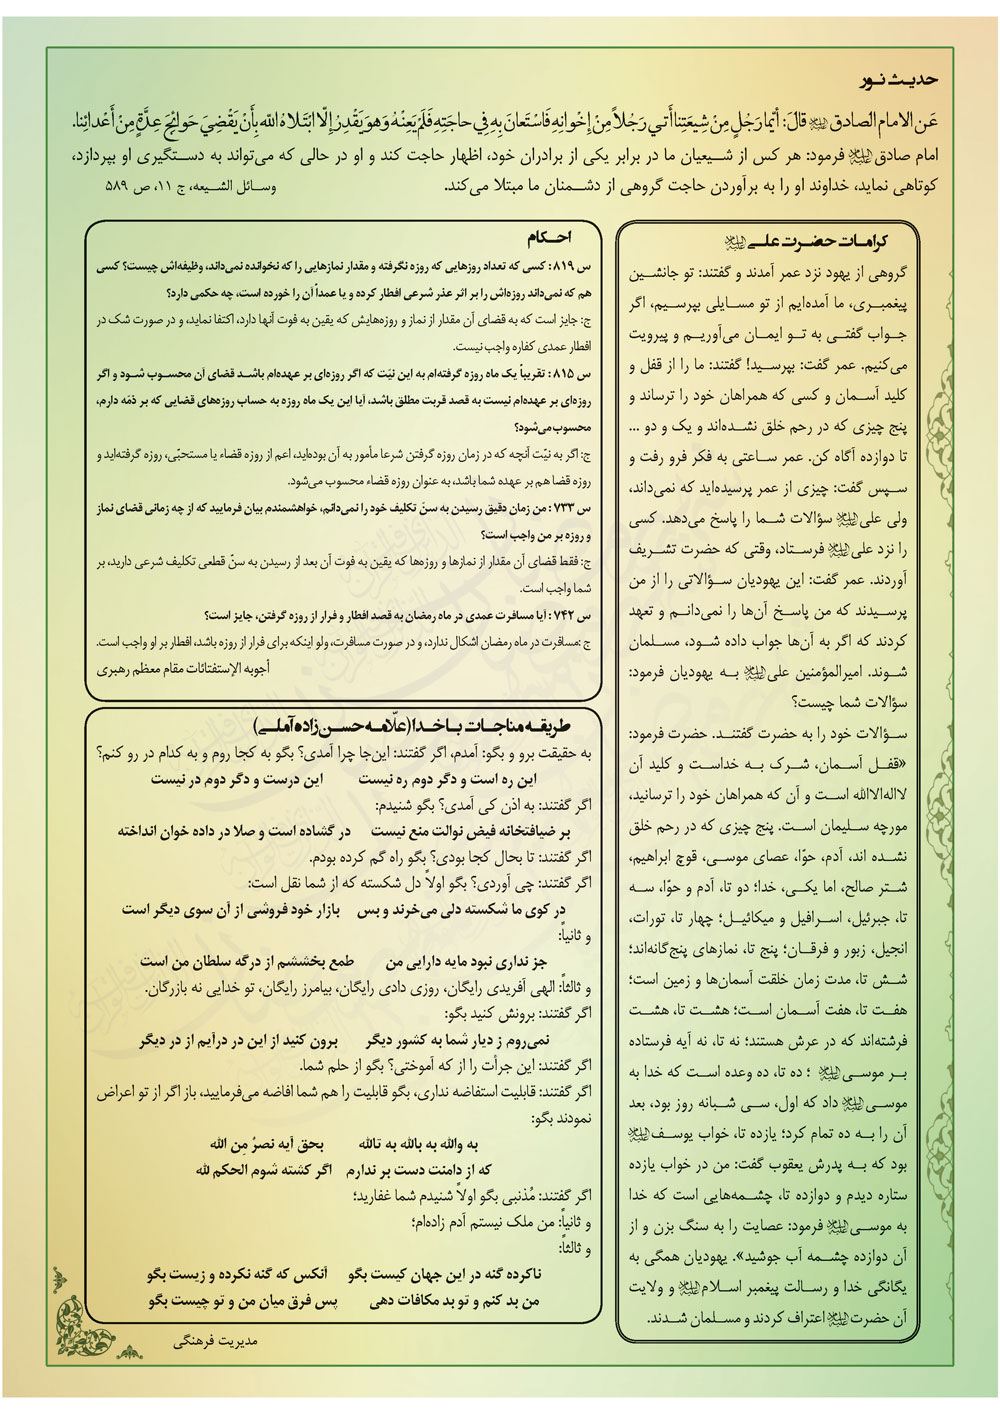 حدیث نور
عَن الامام الصادق علیه‌السلام قالَ: أیُّما رَجُلٍ مِنْ شِیعَتِنا أَتی رَجُلاً مِنْ إِخْوانِهِ فَاسْتَعانَ بِهِ فِی حاجَتِهِ فَلَمْ یُعِنْهُ وَ هُوَ یَقْدِرُ إِلّا ابْتَلاهُ الله بِأَنْ یَقْضِیَ حَوائِجَ عِدَّةٍ مِنْ أَعْدائِنا.
امام صادق علیه‌السلام فرمود: هر کس از شیعیان ما در برابر یکی از برادران خود، اظهار حاجت کند و او در حالی که می‌تواند به دستگیری او بپردازد،
کوتاهی نماید، خداوند او را به برآوردن حاجت گروهی از دشمنان ما مبتلا می‌کند. وسائل الشیعه، ج ۱۱، ص ۵۸۹
کرامات حضرت علی علیه‌السلام
گروهی از یهود نزد عمر آمدند و گفتند: تو جانشین
پیغمبری، ما آمده‌ایم از تو مسایلی بپرسیم، اگر
جواب گفتی به تو ایمان می‌آوریم و پیرویت
می‌کنیم. عمر گفت: بپرسید! گفتند: ما را از قفل و
کلید آسمان و کسی که همراهان خود را ترساند و
پنج چیزی که در رحم خلق نشده‌اند و یک و دو ...
تا دوازده آگاه کن. عمر ساعتی به فکر فرو رفت و
سپس گفت: چیزی از عمر پرسیده‌اید که نمی‌داند،
ولی علی علیه‌السلام سؤالات شما را پاسخ می‌دهد. کسی
را نزد علی علیه‌السلام فرستاد، وقتی که حضرت تشریف
آوردند. عمر گفت: این یهودیان سؤالاتی را از من
پرسیدند که من پاسخ آن‌ها را نمی‌دانم و تعهد
کردند که اگر به آن‌ها جواب داده شود، مسلمان
شوند. امیرالمؤمنین علی علیه‌السلام به یهودیان فرمود:
سؤالات شما چیست؟
سؤالات خود را به حضرت گفتند. حضرت فرمود:
«قفل آسمان، شرک به خداست و کلید آن
لااله‌الاالله است و آن که همراهان خود را ترسانید،
مورچه سلیمان است. پنج چیزی که در رحم خلق
نشده اند، آدم، حوّا، عصای موسی، قوچ ابراهیم،
شتر صالح، اما یکی، خدا؛ دو تا، آدم و حوّا، سه
تا، جبرئیل، اسرافیل و میکائیل؛ چهار تا، تورات،
انجیل، زبور و فرقان؛ پنج تا، نمازهای پنج‌گانه‌اند؛
شش تا، مدت زمان خلقت آسمان‌ها و زمین است؛
هفت تا، هفت آسمان است؛ هشت تا، هشت
فرشته‌اند که در عرش هستند؛ نه تا، نه آیه فرستاده
بر موسی علیه‌السلام ؛ ده تا، ده وعده است که خدا به
موسی علیه‌السلام داد که اول، سی شبانه روز بود، بعد
آن را به ده تمام کرد؛ یازده تا، خواب یوسف علیه‌السلام
بود که به پدرش یعقوب گفت: من در خواب یازده
ستاره دیدم و دوازده تا، چشمه‌هایی است که خدا
به موسی علیه‌السلام فرمود: عصایت را به سنگ بزن و از
آن دوازده چشمه آب جوشید». یهودیان همگی به
یگانگی خدا و رسالت پیغمبر اسلام علیه‌السلام و ولایت
آن حضرت علیه‌السلام اعتراف کردند و مسلمان شدند.
احکام
س ۸۱۹ : کسی که تعداد روزهایی که روزه نگرفته و مقدار نمازهایی را که نخوانده نمی‌داند، وظیفه‌اش چیست؟ کسی
هم که نمی‌داند روزه‌اش را بر اثر عذر شرعی افطار کرده و یا عمداً آن را خورده است، چه حکمی دارد؟
ج: جایز است که به قضای آن مقدار از نماز و روزه‌هایش که یقین به فوت آنها دارد، اکتفا نماید، و در صورت شک در
افطار عمدی کفاره واجب نیست.
س ۸۱۵ : تقریباً یک ماه روزه گرفته‌ام به این نیّت که اگر روزه‌ای بر عهده‌ام باشد قضای آن محسوب شود و اگر
روزه‌ای بر عهده‌ام نیست به قصد قربت مطلق باشد، آیا این یک ماه روزه به حساب روزه‌های قضایی که بر ذمّه دارم،
محسوب می‌شود؟
ج: اگر به نیّت آنچه که در زمان روزه گرفتن شرعا مأمور به آن بوده‌اید، اعم از روزه قضاء یا مستحبّی، روزه گرفته‌اید و
روزه قضا هم بر عهده شما باشد، به عنوان روزه قضاء محسوب می‌شود.
س ۷۳۳ : من زمان دقیق رسیدن به سنّ تکلیف خود را نمی‌دانم، خواهشمندم بیان فرمایید که از چه زمانی قضای نماز
و روزه بر من واجب است؟
ج: فقط قضای آن مقدار از نمازها و روزه‌ها که یقین به فوت آن بعد از رسیدن به سنّ قطعی تکلیف شرعی دارید، بر
شما واجب است.
س ۷۴۲ : آیا مسافرت عمدی در ماه رمضان به قصد افطار و فرار از روزه گرفتن، جایز است؟
ج :مسافرت در ماه رمضان اشکال ندارد، و در صورت مسافرت، ولو اینکه برای فرار از روزه باشد، افطار بر او واجب است.
أجوبه الإستفتائات مقام معظم رهبری
طریقه مناجات با خدا (علّامه حسن زاده آملی)
به حقیقت برو و بگو: آمدم، اگر گفتند: این‌جا چرا آمدی؟ بگو به کجا روم و به کدام در رو کنم؟
این ره است و دگر دوم ره نیست این درست و دگر دوم در نیست
اگر گفتند: به اذن کی آمدی؟ بگو شنیدم:
بر ضیافتخانه فیض نوالت منع نیست در گشاده است و صلا در داده خوان انداخته
اگر گفتند: تا بحال کجا بودی؟ بگو راه گم کرده بودم.
اگر گفتند: چی آوردی؟ بگو اولاً دل شکسته که از شما نقل است:
در کوی ما شکسته دلی می‌خرند و بس بازار خود فروشی از آن سوی دیگر است
و ثانیاً:
جز نداری نبود مایه دارایی من طمع بخششم از درگه سلطان من است
و ثالثاً: الهی آفریدی رایگان، روزی دادی رایگان، بیامرز رایگان، تو خدایی نه بازرگان.
اگر گفتند: برونش کنید بگو:
نمی‌روم ز دیار شما به کشور دیگر برون کنید از این در درآیم از در دیگر
اگر گفتند: این جرأت را از که آموختی؟ بگو از حلم شما.
اگر گفتند: قابلیت استفاضه نداری، بگو قابلیت را هم شما افاضه می‌فرمایید، باز اگر از تو اعراض
نمودند بگو:
به والله به بالله به تالله بحق آیه نصرٌ مِن الله
که از دامنت دست بر ندارم اگر کشته شوم الحکم لله
اگر گفتند: مُذنبی بگو اولاً شنیدم شما غفارید؛
و ثانیاً: من ملک نیستم آدم زاده‌ام؛
و ثالثاً:
ناکرده گنه در این جهان کیست بگو آنکس که گنه نکرده و زیست بگو
من بد کنم و تو بد مکافات دهی پس فرق میان من و تو چیست بگو
مدیریت فرهنگی